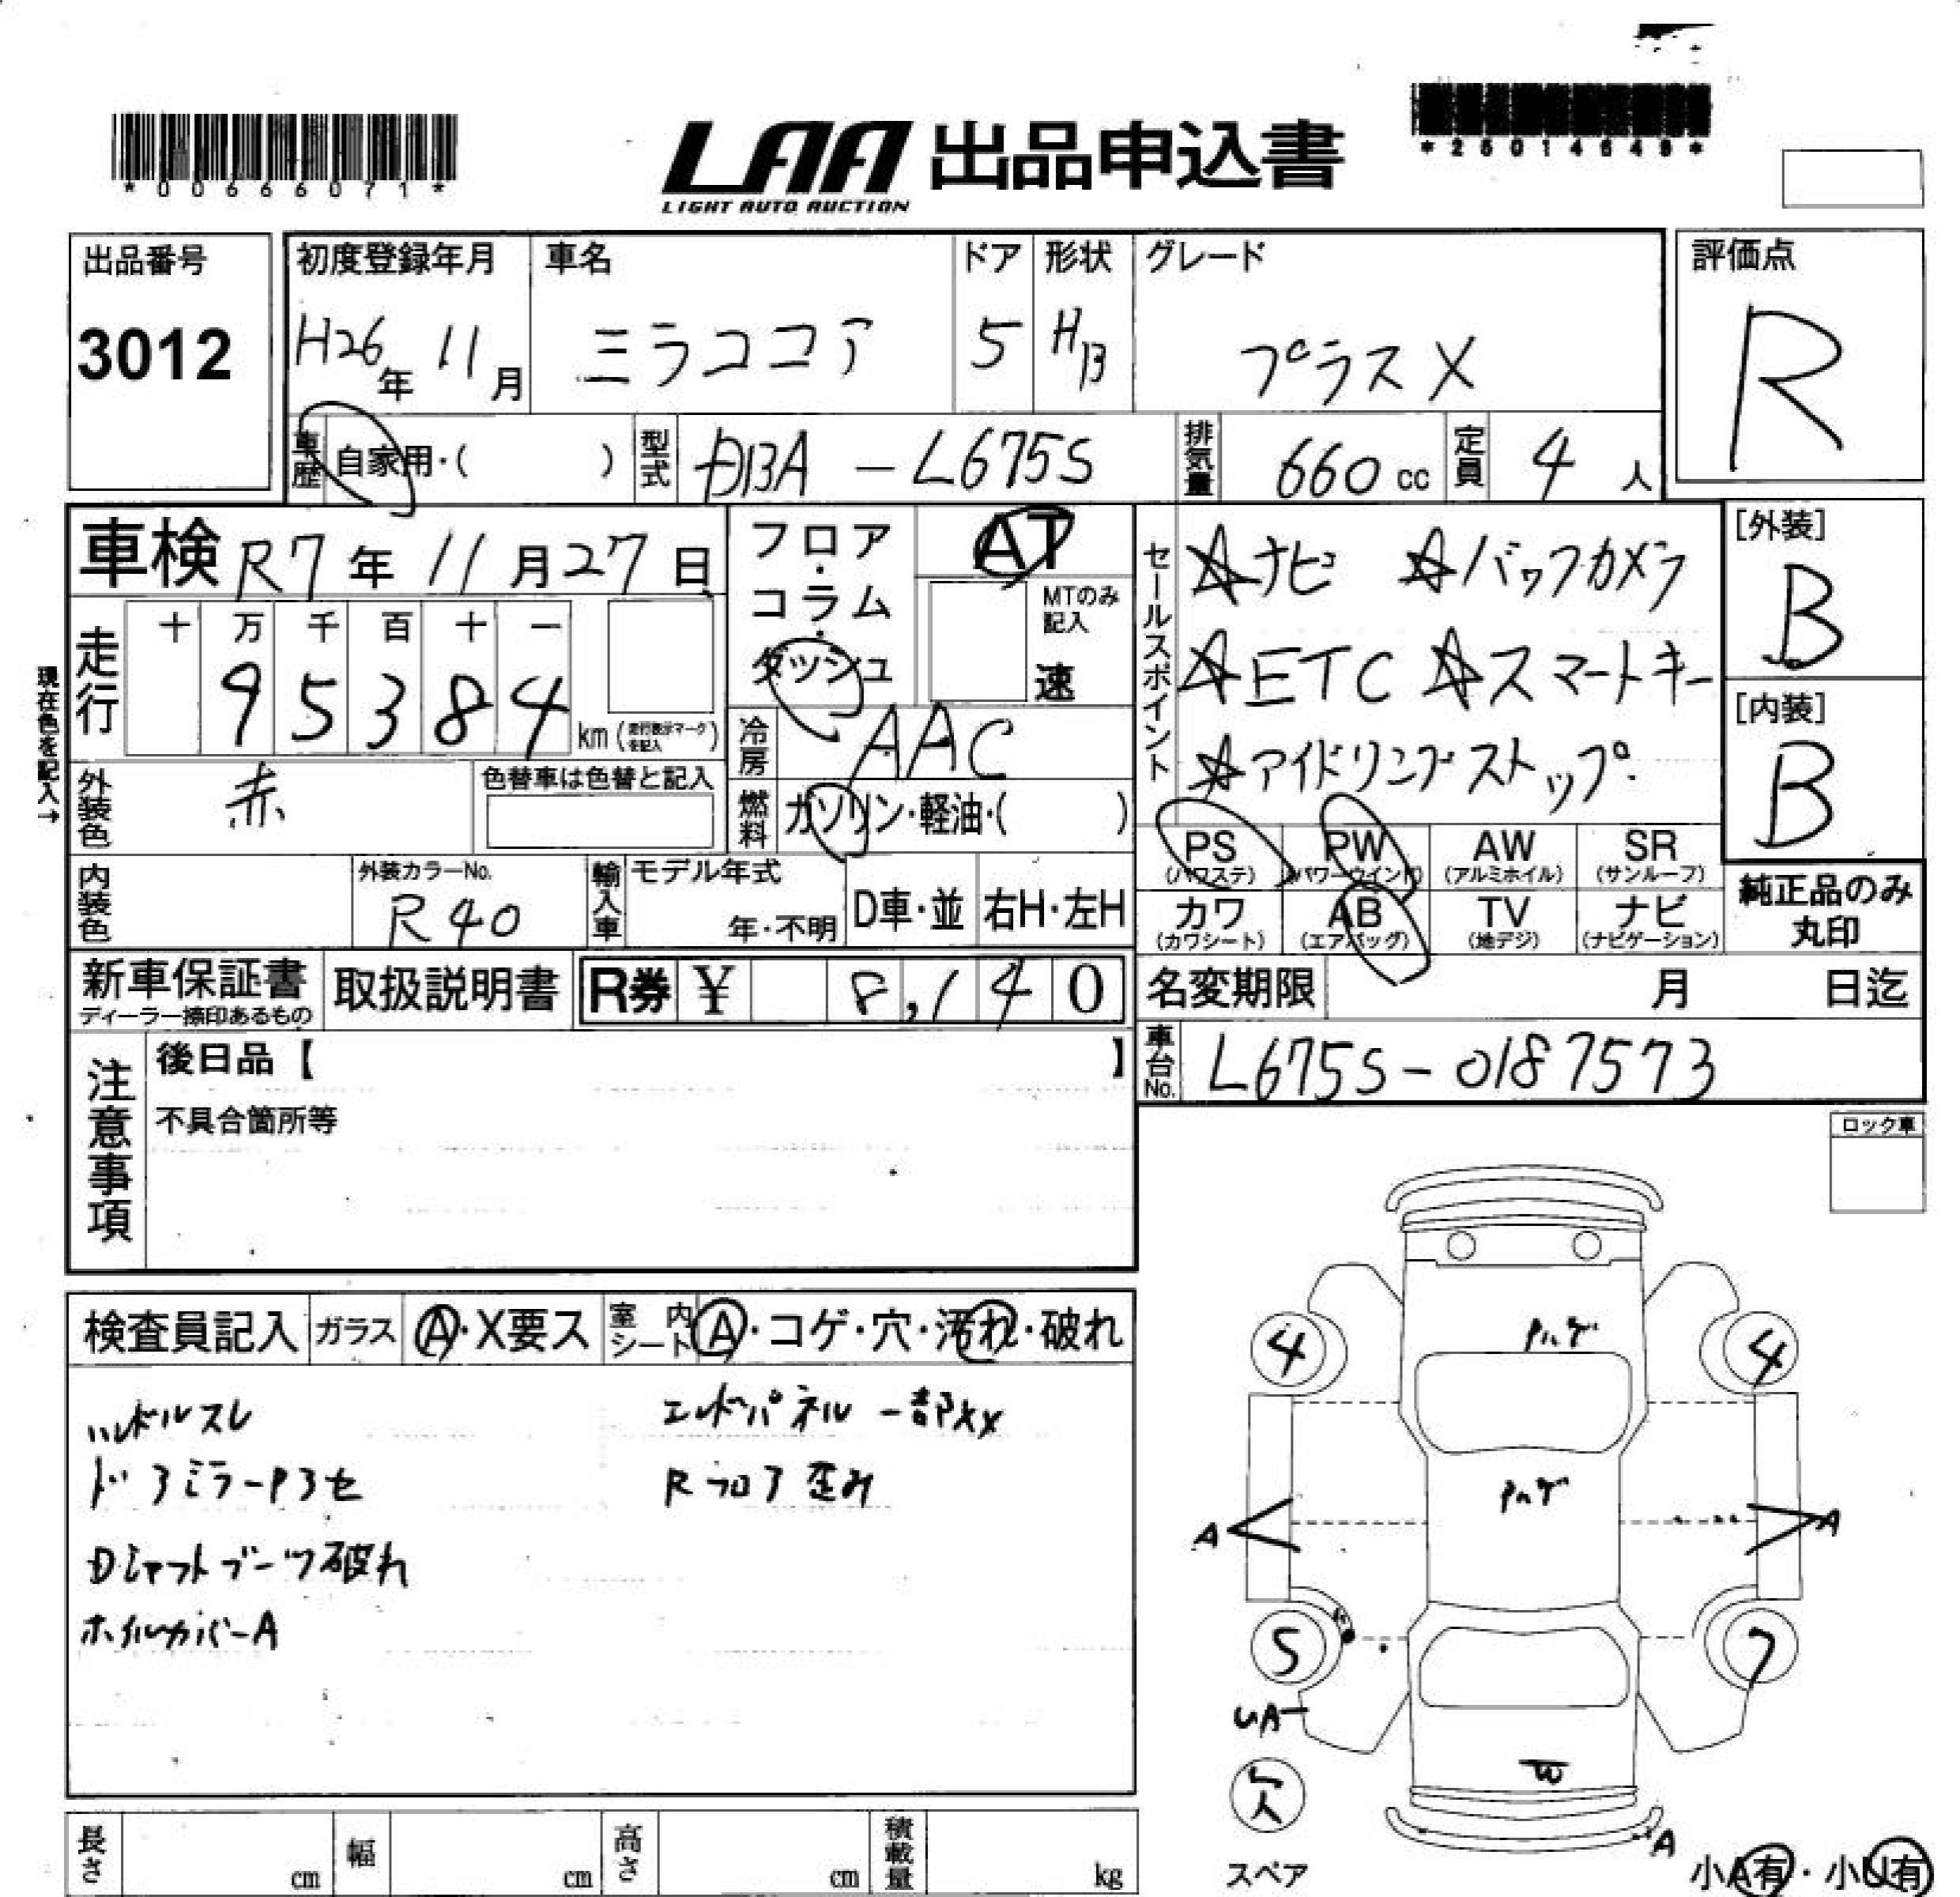 *00666071*
LAA 出品申込書
LIGHT AUTO AUCTION
*25014649*
出品番号
3012
初度登録年月
H26年 11月
車名
ミラココア
ドア
5
形状
HB
グレード
プラスX
評価点
R
車歴 自家用・( )
型式 DBA-L675S
排気量 660cc
定員 4人
車検 R7年 11月27日
走行
十 万 千 百 十 一
9 5 3 8 4
km (走行表示マークを記入)
現在色を記入→
フロア・コラム・ダッシュ
AT
MTのみ記入
速
冷房 AAC
燃料 ガソリン・軽油・( )
セールスポイント
☆ナビ ☆バックカメラ
☆ETC ☆スマートキー
☆アイドリングストップ
[外装]
B
[内装]
B
外装色 赤
色替車は色替と記入
内装色
外装カラーNo.
R40
輸入車
モデル年式
年・不明
D車・並
右H・左H
PS (パワステ)
PW (パワーウインド)
AW (アルミホイル)
SR (サンルーフ)
カワ (カワシート)
AB (エアバッグ)
TV (地デジ)
ナビ (ナビゲーション)
純正品のみ
丸印
新車保証書
ディーラー捺印あるもの
取扱説明書
R券 ¥ 8,140
名変期限 月 日迄
車台No. L675S-0187573
注意事項
後日品【 】
不具合箇所等
ロック車
検査員記入
ガラス A・X要ス
室内シート A・コゲ・穴・汚れ・破れ
ハンドルスレ
エンドパネル一部XX
ドアミラーPアセ
Rフロア歪み
Dシャフトブーツ破れ
ホイルカバーA
4
4
Pハゲ
Pハゲ
A
A
5
7
UA
W
欠
A
スペア
小A有・小U有
長さ cm
幅 cm
高さ cm
積載量 kg